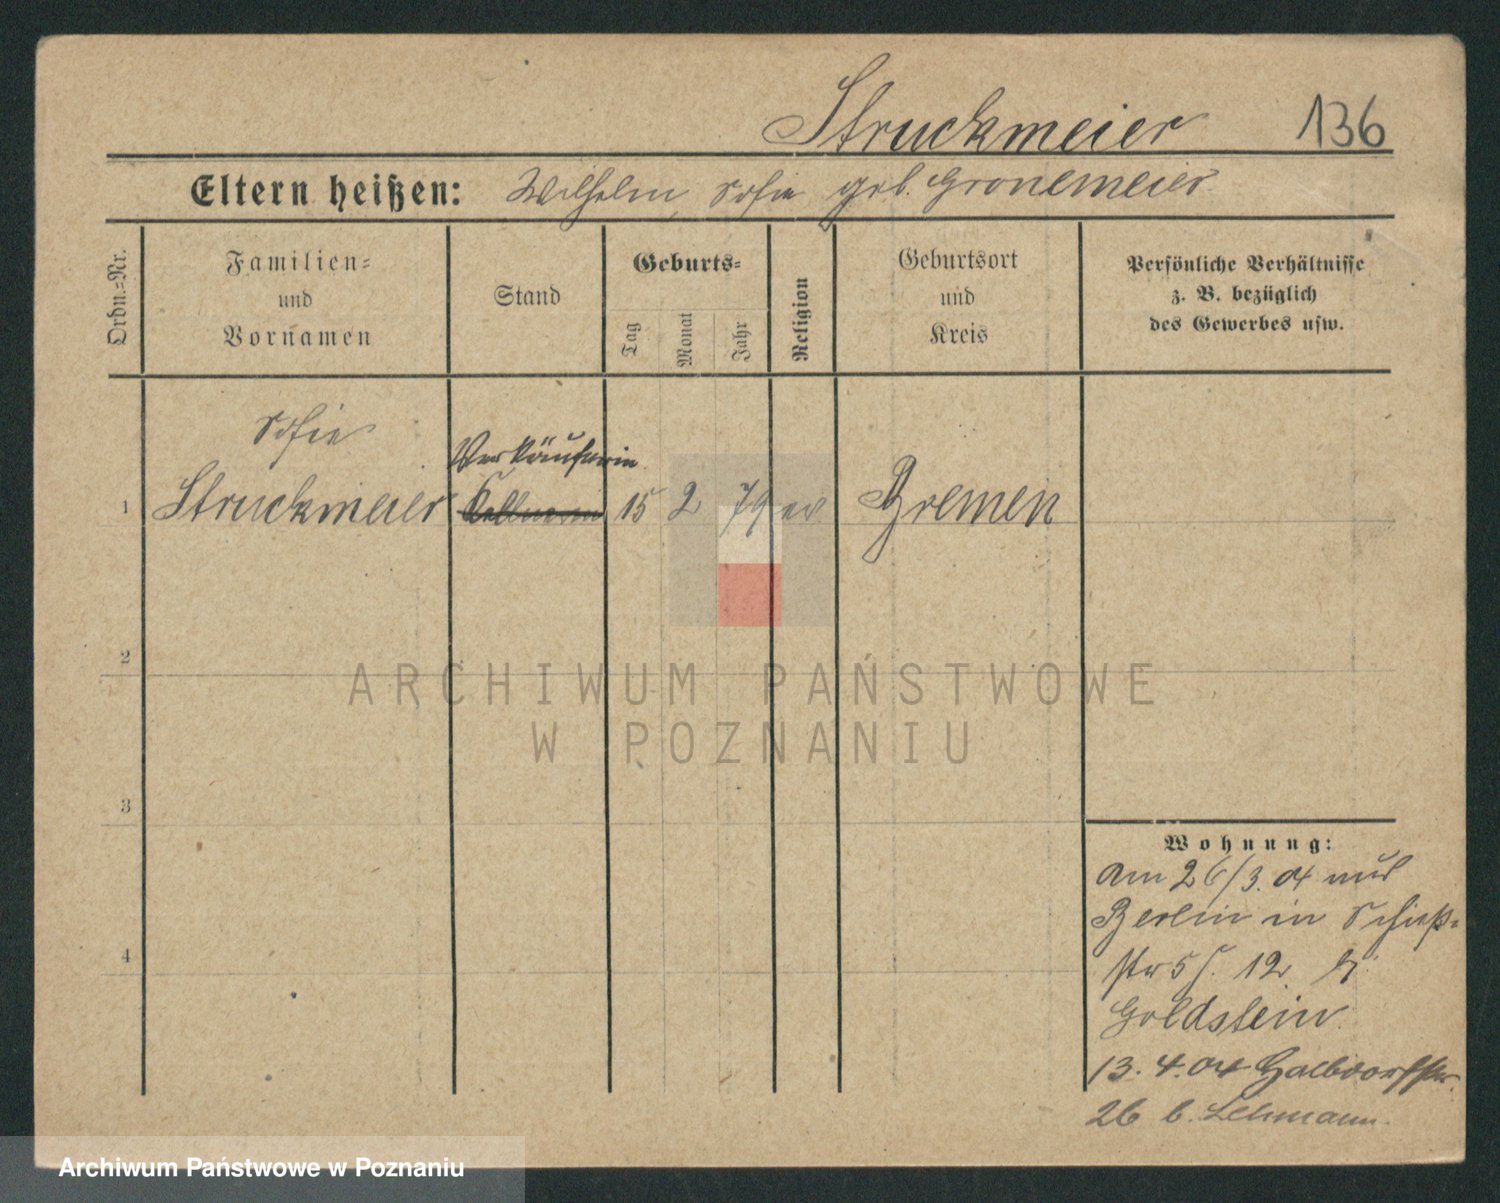 Struckmeier 136
Eltern heißen: Wilhelm, Sofie geb. Gronemeier
Ordn.-Nr.
Familien-
und
Vornamen
Stand
Geburts-
Tag
Monat
Jahr
Religion
Geburtsort
und
Kreis
Persönliche Verhältnisse
z. B. bezüglich
des Gewerbes usw.
Sofie
Verkäuferin
1 Struckmeier Kellnerin 15 2 79 ev Bremen
2
ARCHIWUM PAŃSTWOWE
W POZNANIU
3
4
Wohnung:
am 26/3.04 aus
Berlin in Schieß-
str 5 12 b
Goldstein
13.4.04 Halbdorfstr.
26 b. Lehmann.
Archiwum Państwowe w Poznaniu